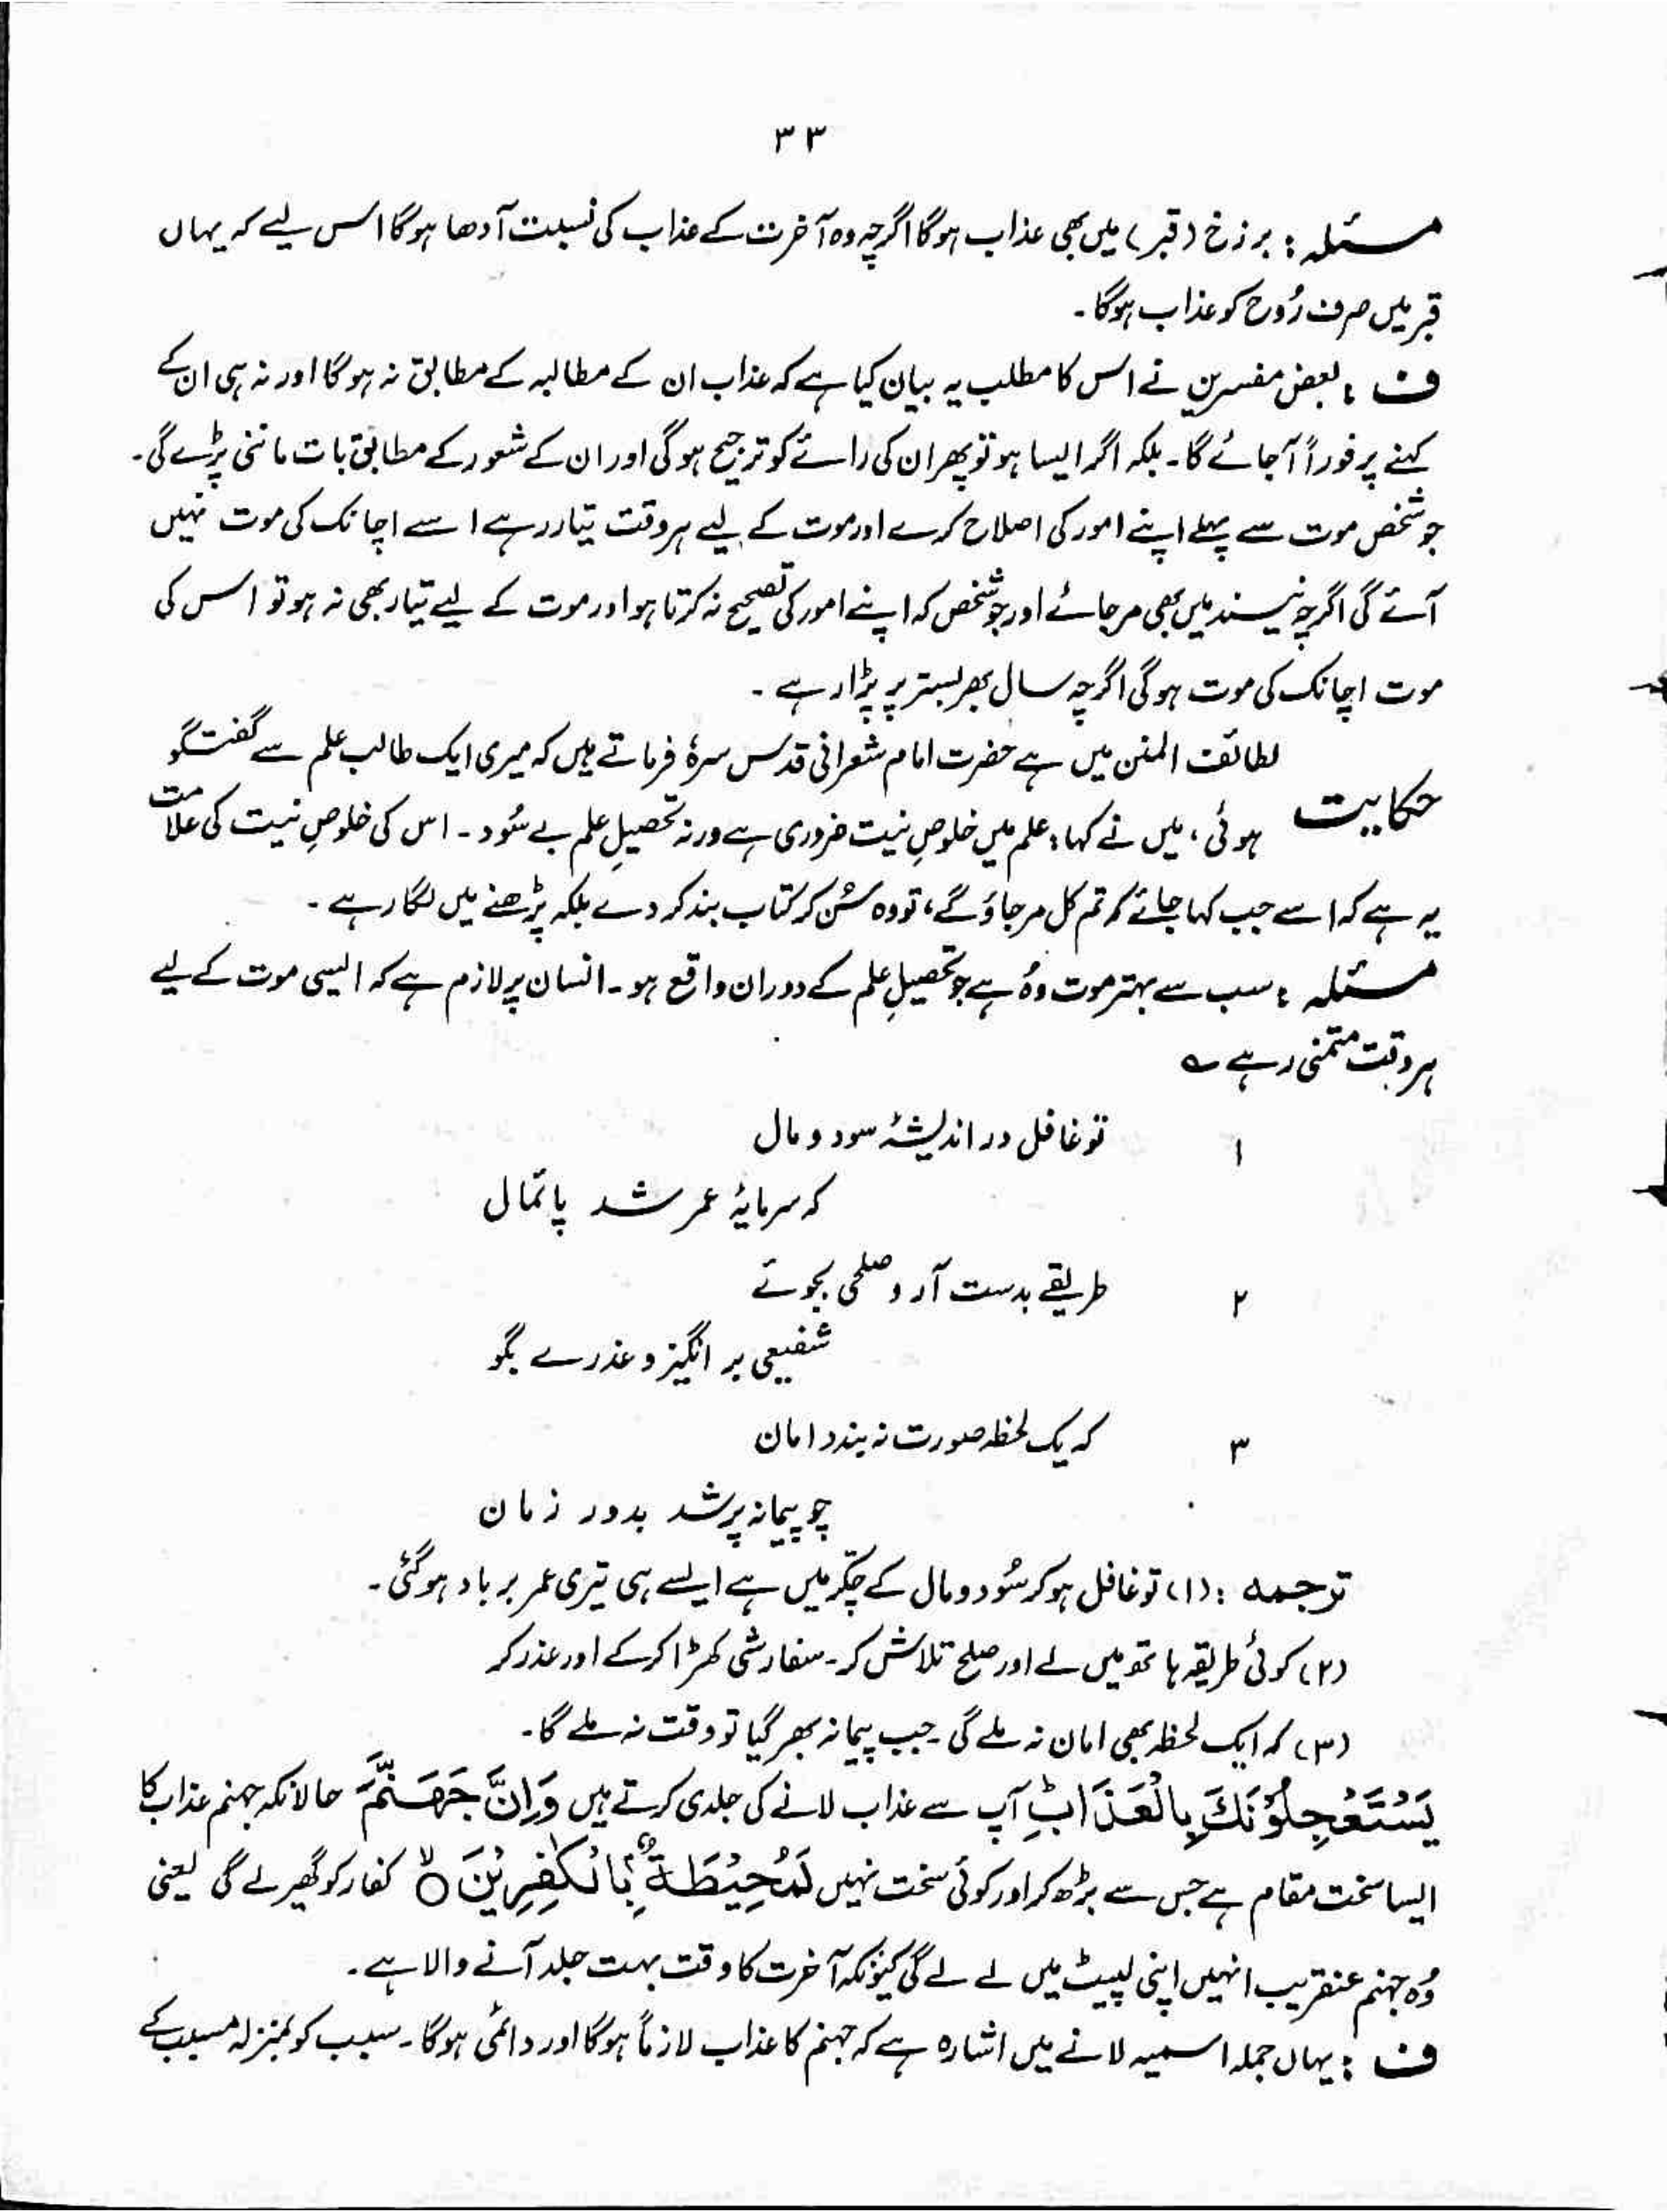 ۳۳
مسئلہ : برزخ (قبر) میں بھی عذاب ہوگا اگرچہ وہ آخرت کے عذاب کی نسبت آدھا ہوگا اس لیے کہ یہاں
قبر میں صرف رُوح کو عذاب ہوگا۔
ف : بعض مفسرین نے اس کا مطلب یہ بیان کیا ہے کہ عذاب ان کے مطالبہ کے مطابق نہ ہوگا اور نہ ہی ان کے
کہنے پر فوراً آجائے گا۔ بلکہ اگر ایسا ہو تو پھر ان کی رائے کو ترجیح ہوگی اور ان کے شعور کے مطابق بات ماننی پڑے گی۔
جو شخص موت سے پہلے اپنے امور کی اصلاح کرے اور موت کے لیے ہر وقت تیار رہے اسے اچانک کی موت نہیں
آئے گی اگرچہ نیند میں بھی مرجائے اور جو شخص کہ اپنے امور کی تصحیح نہ کرتا ہو اور موت کے لیے تیار بھی نہ ہو تو اس کی
موت اچانک کی موت ہوگی اگرچہ سال بھر بستر پر پڑا رہے ۔
لطائف المنن میں ہے حضرت امام شعرانی قدس سرہٗ فرماتے ہیں کہ میری ایک طالب علم سے گفتگو
حکایت ہوئی ، میں نے کہا : علم میں خلوصِ نیت ضروری ہے ورنہ تحصیلِ علم بے سُود ۔ اس کی خلوصِ نیت کی علامت
یہ ہے کہ اسے جب کہا جائے کہ تم کل مرجاؤ گے ، تو وہ سُن کر کتاب بند کر دے بلکہ پڑھنے میں لگا رہے ۔
مسئلہ : سب سے بہتر موت وُہ ہے جو تحصیلِ علم کے دوران واقع ہو ۔ انسان پر لازم ہے کہ ایسی موت کے لیے
ہر وقت متمنی رہے ؎
۱ تو غافل در اندیشۂ سود و مال
کہ سرمایۂ عمر شد پائمال
۲ طریقے بدست آر و صلحی بجوئے
شفیعی بر انگیز و عذرے بگو
۳ کہ یک لحظہ صورت نہ بندد امان
چو پیمانہ پر شد بدور زمان
ترجمہ : (۱) تو غافل ہو کر سُود و مال کے چکّر میں ہے ایسے ہی تیری عمر برباد ہو گئی ۔
(۲) کوئی طریقہ ہاتھ میں لے اور صلح تلاش کر ۔ سفارشی کھڑا کر کے اور عذر کر
(۳) کہ ایک لحظہ بھی امان نہ ملے گی جب پیمانہ بھر گیا تو وقت نہ ملے گا ۔
یَسْتَعْجِلُوْنَکَ بِالْعَذَابِ آپ سے عذاب لانے کی جلدی کرتے ہیں وَاِنَّ جَهَنَّمَ حالانکہ جہنم عذاب کا
ایسا سخت مقام ہے جس سے بڑھ کر اور کوئی سخت نہیں لَمُحِیْطَةٌۢ بِالْکٰفِرِیْنَ ۙ○ کفار کو گھیر لے گی یعنی
وُہ جہنم عنقریب انہیں اپنی لپیٹ میں لے لے گی کیونکہ آخرت کا وقت بہت جلد آنے والا ہے ۔
ف : یہاں جملہ اسمیہ لانے میں اشارہ ہے کہ جہنم کا عذاب لازماً ہوگا اور دائمی ہوگا ۔ سبب کو بمنزلہ مسبب کے